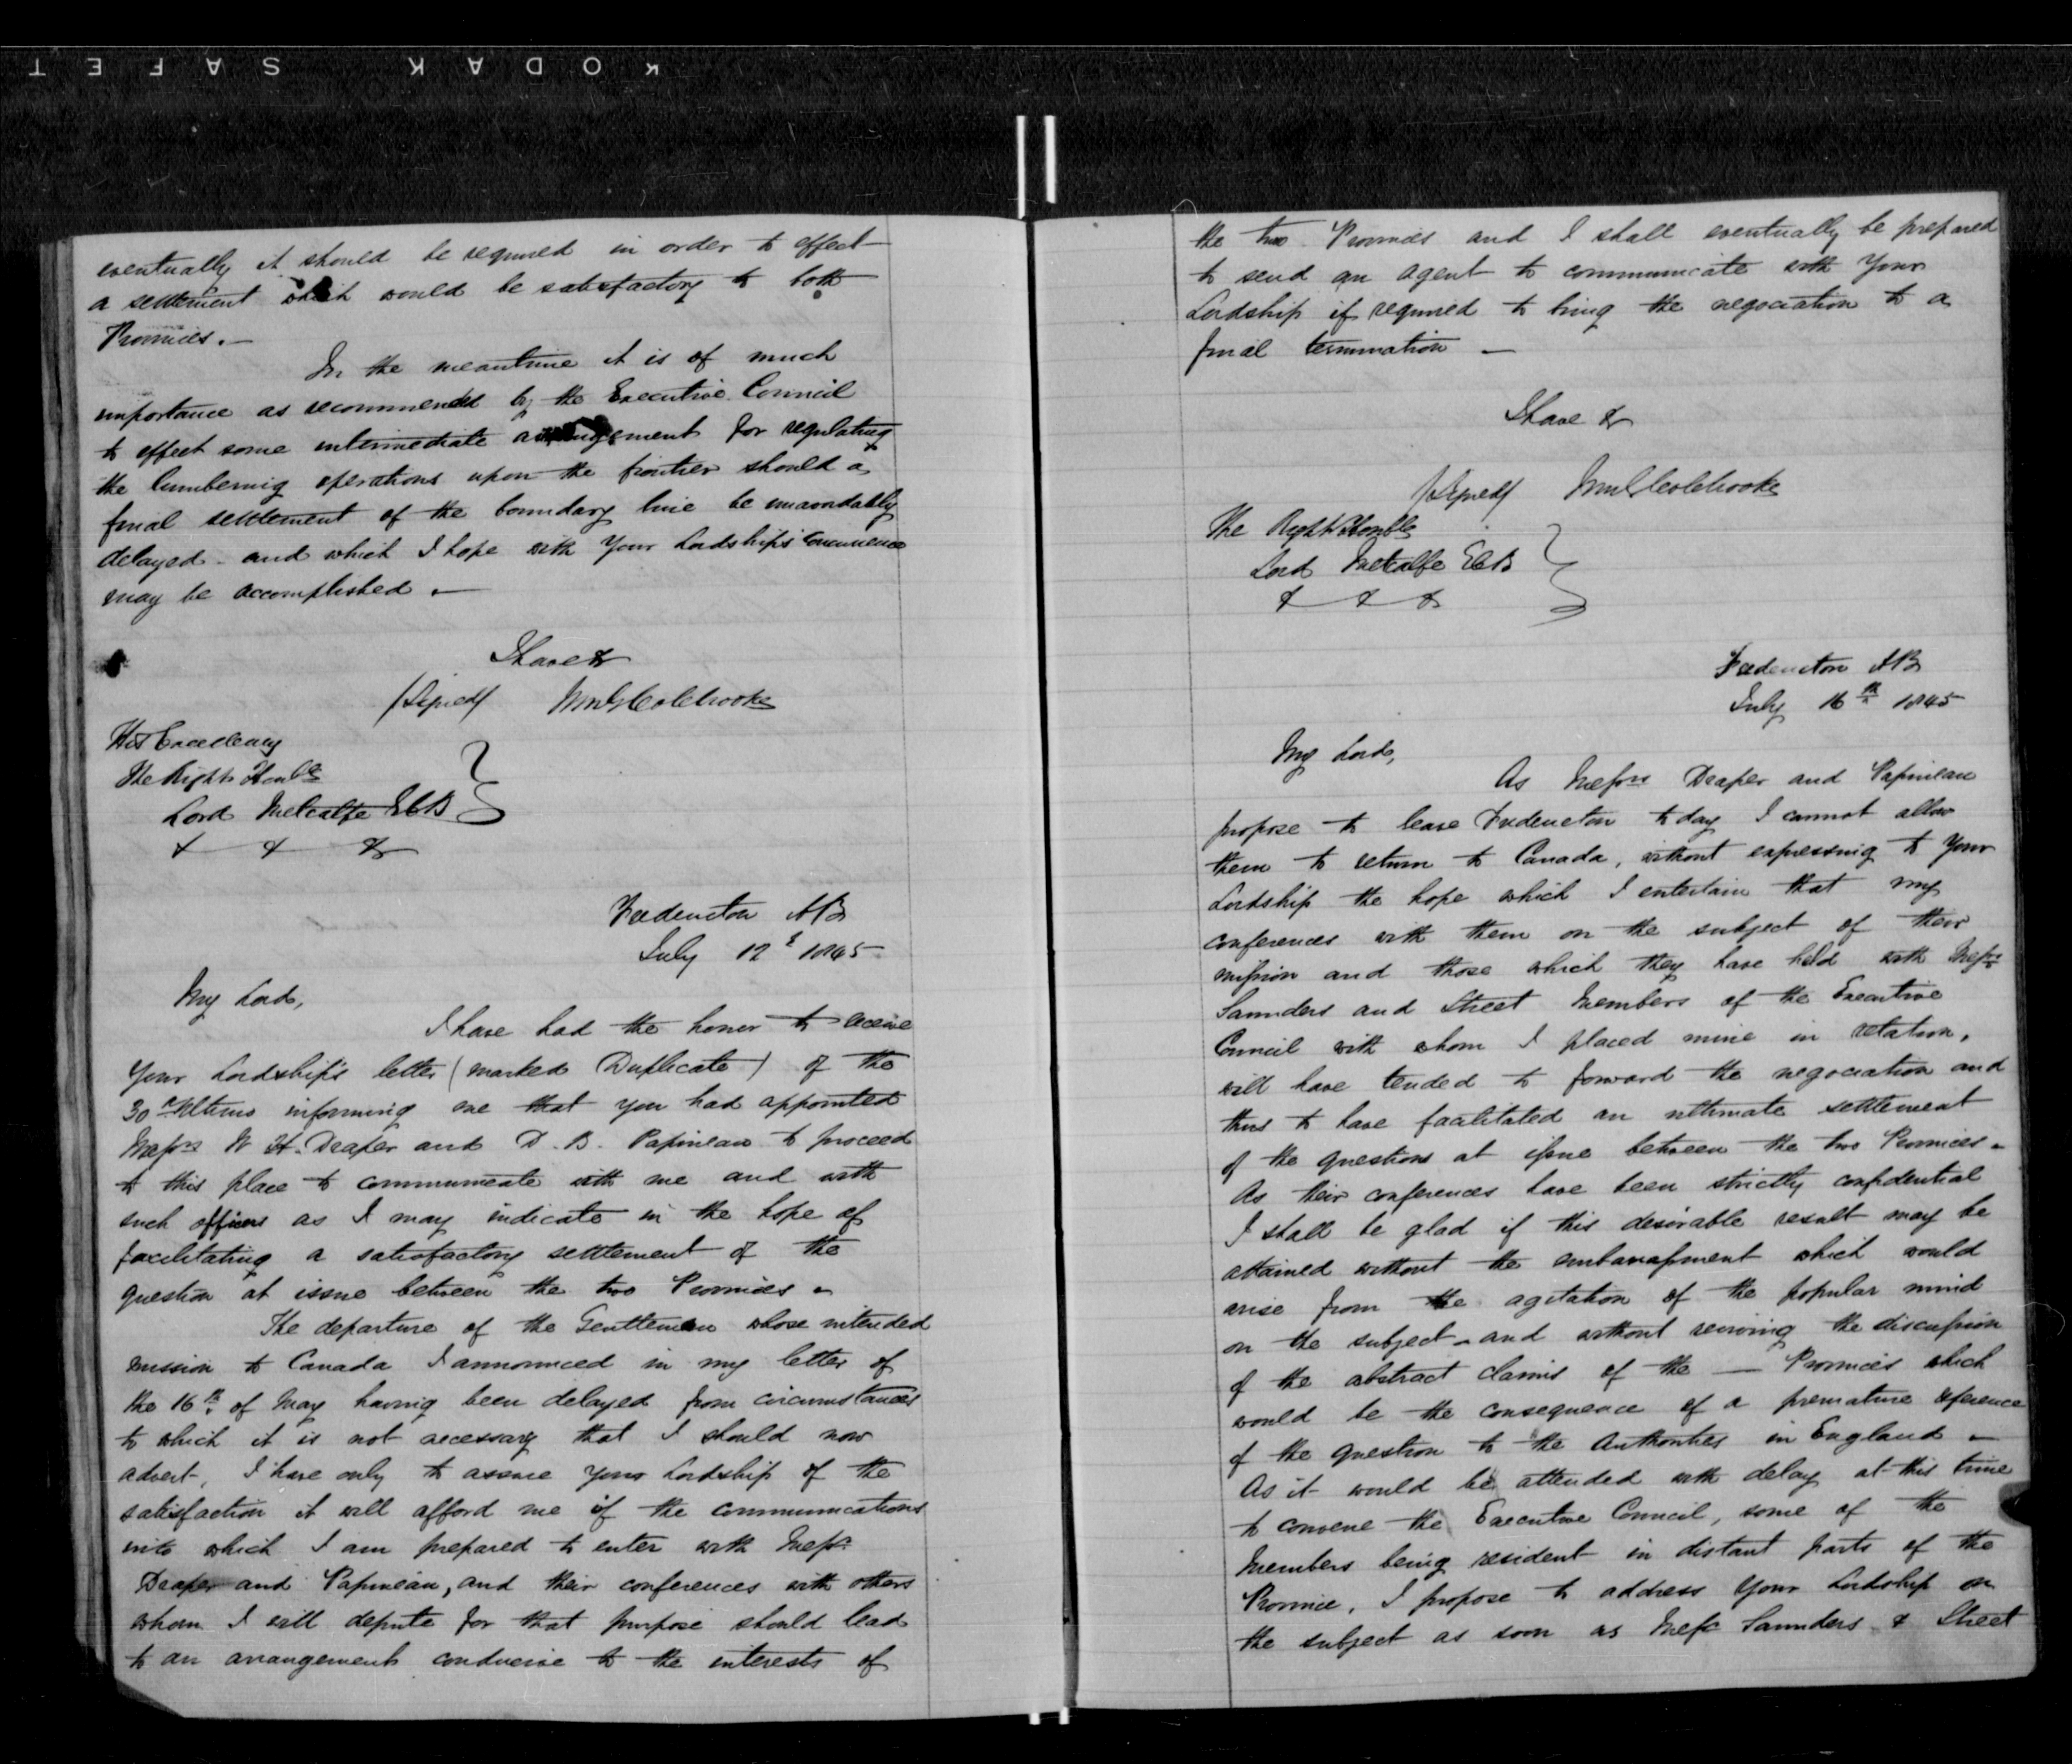 KODAK SAFET
eventually it should be required in order to effect
a settlement which would be satisfactory to both
Provinces. —
In the meantime it is of much
importance as recommended by the Executive Council
to effect some intermediate arrangement for regulating
the lumbering operations upon the frontier should a
final settlement of the boundary line be unavoidably
delayed - and which I hope with Your Lordship's concurrence
may be accomplished. —
I have &
/Signed/ Wm G Colebrooke
His Excellency
The Right Honble
Lord Metcalfe GCB
& & &
Fredericton NB
July 12th 1845
My Lord,
I have had the honor to receive
Your Lordship's letter (marked Duplicate) of the
30th Ultimo informing me that you had appointed
Messrs W H. Draper and D. B. Papineau to proceed
to this place to communicate with me and with
such officers as I may indicate in the hope of
facilitating a satisfactory settlement of the
question at issue between the two Provinces -
The departure of the Gentlemen whose intended
mission to Canada I announced in my letter of
the 16th of May having been delayed from circumstances
to which it is not necessary that I should now
advert, I have only to assure your Lordship of the
satisfaction it will afford me if the communications
into which I am prepared to enter with Messrs
Draper and Papineau, and their conferences with others
whom I will depute for that purpose should lead
to an arrangement conducive to the interests of
the two Provinces and I shall eventually be prepared
to send an agent to communicate with Your
Lordship if required to bring the negociation to a
final termination —
I have &
/Signed/ Wm G Colebrooke
The Right Honble
Lord Metcalfe GCB
& & &
Fredericton NB
July 16th 1845
My Lord,
As Messrs Draper and Papineau
propose to leave Fredericton to day I cannot allow
them to return to Canada, without expressing to Your
Lordship the hope which I entertain that my
conferences with them on the subject of their
mission and those which they have held with Messrs
Saunders and Street Members of the Executive
Council with whom I placed mine in relation,
will have tended to forward the negociation and
thus to have facilitated an ultimate settlement
of the questions at issue between the two Provinces -
As their conferences have been strictly confidential
I shall be glad if this desirable result may be
attained without the embarrassment which would
arise from the agitation of the popular mind
on the subject - and without reviving the discussion
of the abstract claims of the — Provinces which
would be the consequence of a premature reference
of the question to the Authorities in England —
As it would be attended with delay at this time
to convene the Executive Council, some of the
Members being resident in distant parts of the
Province, I propose to address Your Lordship on
the subject as soon as Messrs Saunders & Street